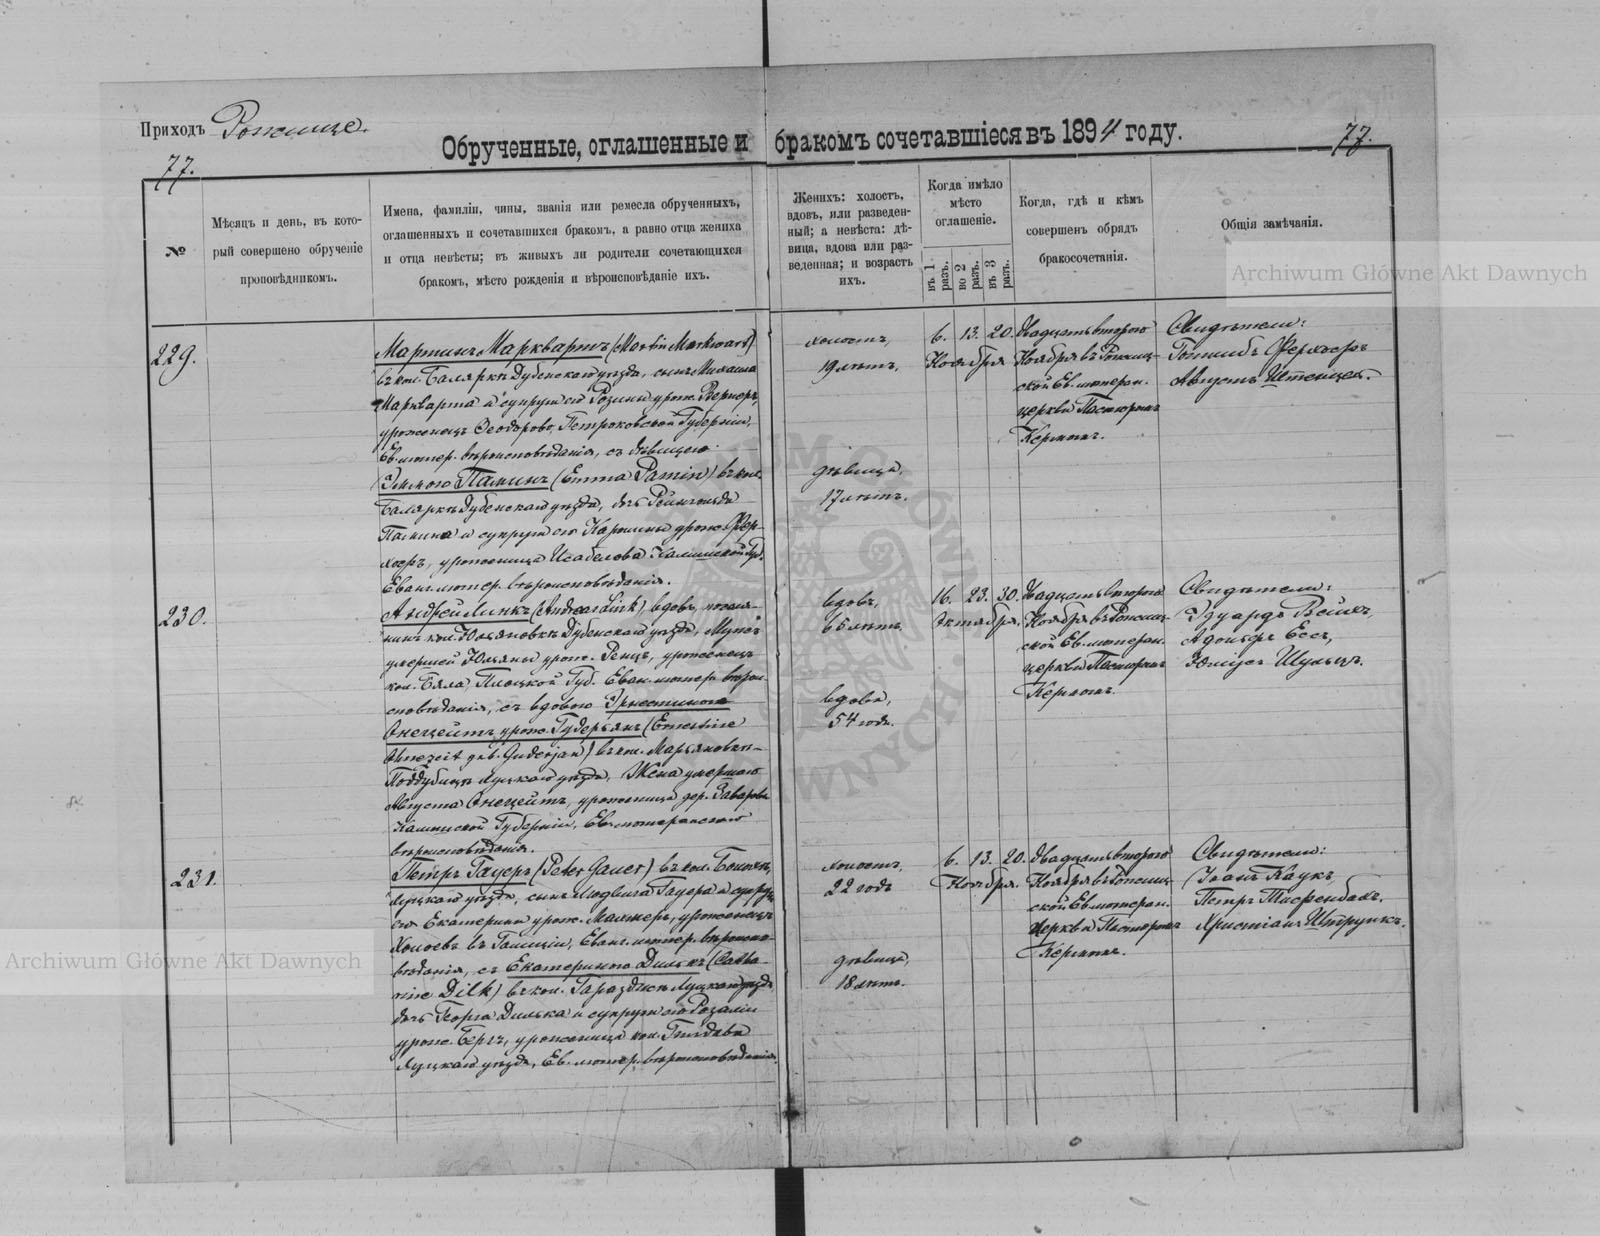 Приходъ Рожище.
Обрученные, оглашенные и бракомъ сочетавшіеся въ 1894 году.
77.
77.
№
Мѣсяцъ и день, въ кото-
рый совершено обрученіе
проповѣдникомъ.
Имена, фамиліи, чины, званія или ремесла обрученныхъ,
оглашенныхъ и сочетавшихся бракомъ, а равно отца жениха
и отца невѣсты; въ живыхъ ли родители сочетающихся
бракомъ, мѣсто рожденія и вѣроисповѣданіе ихъ.
Женихъ: холостъ,
вдовъ, или разведен-
ный; а невѣста: дѣ-
вица, вдова или раз-
веденная; и возрастъ
ихъ.
Когда имѣло
мѣсто
оглашеніе.
въ 1 разъ.
во 2 разъ.
въ 3 разъ.
Когда, гдѣ и кѣмъ
совершенъ обрядъ
бракосочетанія.
Общія замѣчанія.
229.
Мартинъ Марквартъ (Martin Markwart)
въ кол. Балярка Дубенскаго уѣзда, сынъ Михаила
Маркварта и супруги его Розины урож. Вернеръ,
уроженецъ Феодорово, Петроковской Губерніи,
Ев. лютер. вѣроисповѣданія, съ дѣвицею
Эммою Паминъ (Emma Pamin) въ кол.
Балярка Дубенскаго уѣзда, дочь Рейнгольда
Памина и супруги его Каролины урож. Фер-
хофъ, уроженица Изабелова Калишской Губ.
Еванг. лютер. вѣроисповѣданія.
холостъ,
19 лѣтъ.
дѣвица,
17 лѣтъ.
6. 13. 20.
Ноября
Двадцать второго
Ноября въ Рожищ-
ской Ев. лютеран.
церкви Пасторомъ
Керммъ.
Свидѣтели:
Готлибъ Ферхофъ
Августъ Штенцель.
230.
Андрей Линкъ (Andreas Link) вдовъ, поселя-
нинъ кол. Юльяновка Дубенскаго уѣзда, Мужъ
умершей Юльяны урож. Ренцъ, уроженецъ
кол. Бяла, Плоцкой Губ. Еван. лютер. вѣрои-
сповѣданія, съ вдовою Эрнестиною
Онецейтъ урож. Гудерьянъ (Ernestine
Ohnezeit geb. Guderjan) въ кол. Марьяновка-
Поддубцы Луцкаго уѣзда, Жена умершаго
Августа Онецейтъ, уроженица дер. Заварова
Калишской Губерніи, Ев. лютеранскаго
вѣроисповѣданія.
вдовъ,
65 лѣтъ.
вдова,
54 года.
16. 23. 30.
Октября.
Двадцать второго
Ноября въ Рожищ-
ской Ев. лютеран.
церкви Пасторомъ
Керммъ.
Свидѣтели:
Эдуардъ Вейкъ,
Адольфъ Бессъ,
Юліусъ Шульцъ.
231.
Петръ Гауеръ (Peter Gauer) въ кол.
Луцкаго уѣзда, сынъ Людвига Гауера и супруги
его Екатерины урож. Маллжеръ, уроженецъ
Холоевъ въ Галиціи, Еванг. лютер. вѣроиспо-
вѣданія, съ Екатериною Дилькъ (Catha-
rine Dilk) въ кол. Гараздже Луцкаго уѣзда
дочь Георга Дилька и супруги его Розаліи
урож. Бергъ, уроженица кол. Гнидава
Луцкаго уѣзда, Ев. лютер. вѣроисповѣданія.
холостъ,
22 года
дѣвица,
18 лѣтъ.
6. 13. 20.
Ноября.
Двадцать второго
Ноября въ Рожищ-
ской Ев. лютеран.
церкви Пасторомъ
Керммъ.
Свидѣтели:
Іоанъ Каукъ
Петръ Тасфенбахъ.
Христіанъ Штрупкъ.
Archiwum Główne Akt Dawnych
Archiwum Główne Akt Dawnych